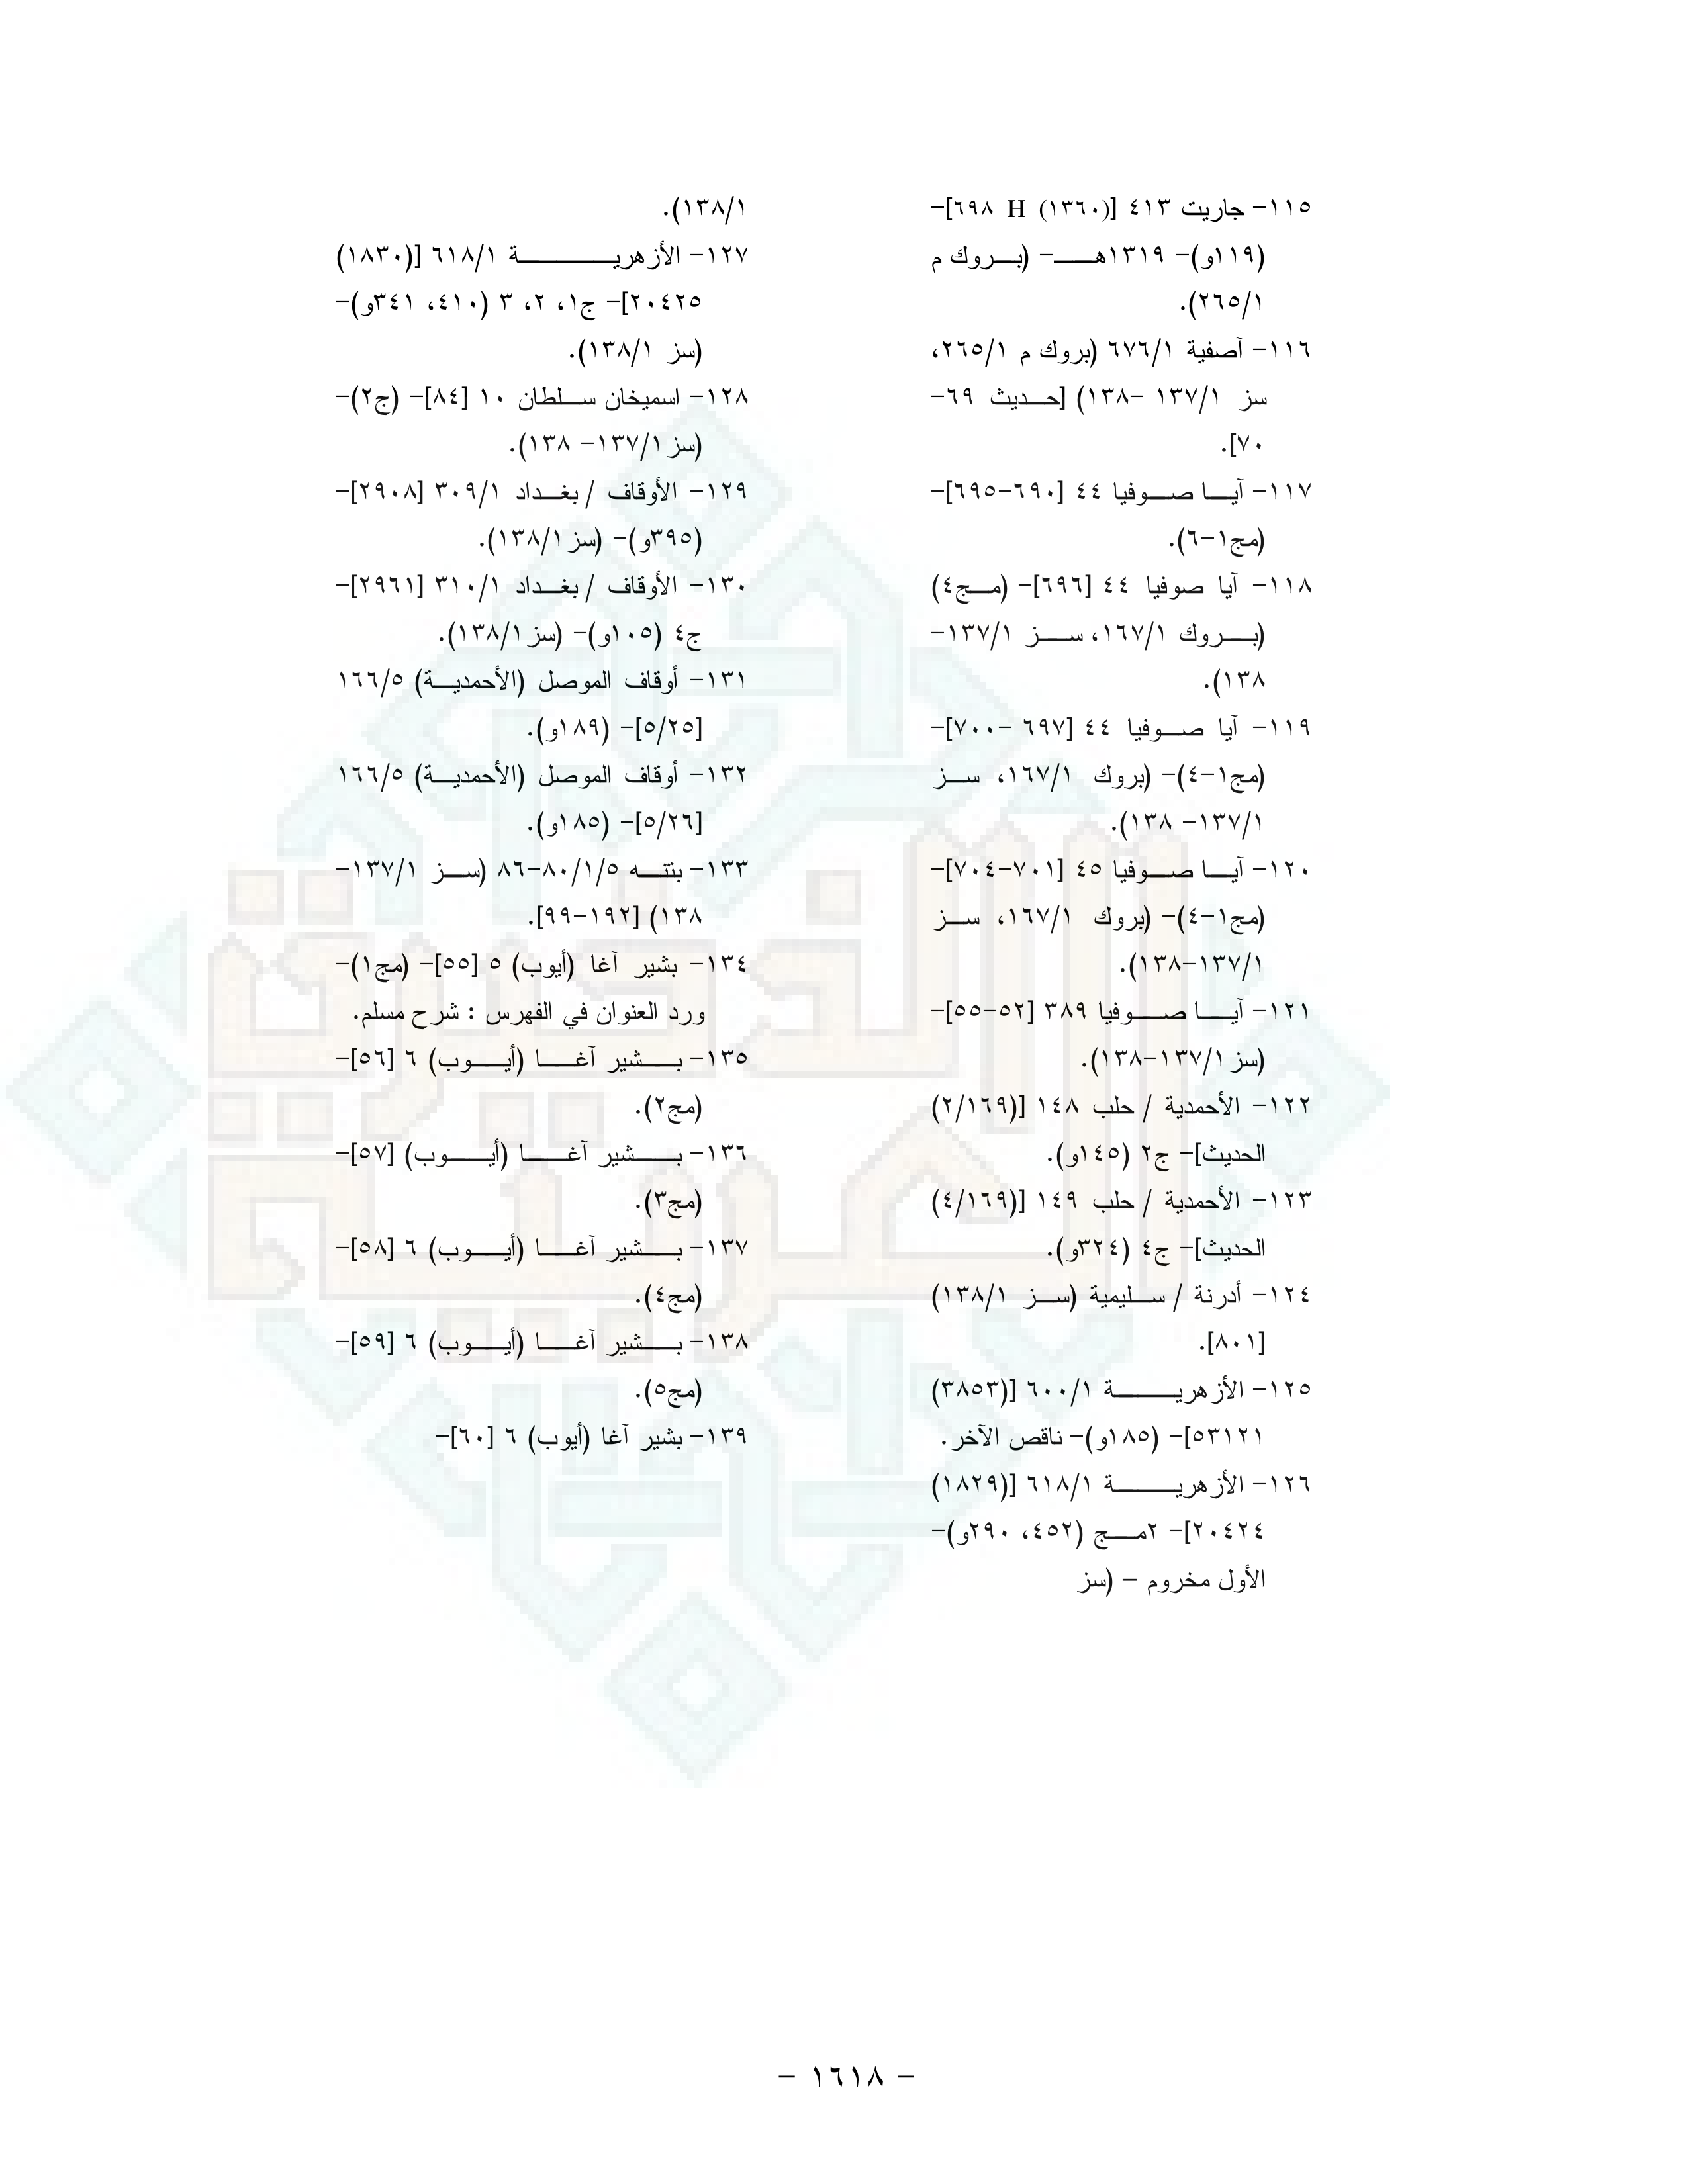 ١١٥- جاريت ٤١٣ [(١٣٦٠) H ٦٩٨]-
(١١٩و)- ١٣١٩هـ- (بروك م
٢٦٥/١).
١١٦- آصفية ٦٧٦/١ (بروك م ٢٦٥/١،
سز ١٣٧/١ -١٣٨) [حديث ٦٩-
٧٠].
١١٧- آيا صوفيا ٤٤ [٦٩٠-٦٩٥]-
(مج١-٦).
١١٨- آيا صوفيا ٤٤ [٦٩٦]- (مج٤)
(بروك ١٦٧/١، سز ١٣٧/١-
١٣٨).
١١٩- آيا صوفيا ٤٤ [٦٩٧ -٧٠٠]-
(مج١-٤)- (بروك ١٦٧/١، سز
١٣٧/١- ١٣٨).
١٢٠- آيا صوفيا ٤٥ [٧٠١-٧٠٤]-
(مج١-٤)- (بروك ١٦٧/١، سز
١٣٧/١-١٣٨).
١٢١- آيا صوفيا ٣٨٩ [٥٢-٥٥]-
(سز ١٣٧/١-١٣٨).
١٢٢- الأحمدية / حلب ١٤٨ [(٢/١٦٩)
الحديث]- ج٢ (١٤٥و).
١٢٣- الأحمدية / حلب ١٤٩ [(٤/١٦٩)
الحديث]- ج٤ (٣٢٤و).
١٢٤- أدرنة / سليمية (سز ١٣٨/١)
[٨٠١].
١٢٥- الأزهرية ٦٠٠/١ [(٣٨٥٣)
٥٣١٢١]- (١٨٥و)- ناقص الآخر.
١٢٦- الأزهرية ٦١٨/١ [(١٨٢٩)
٢٠٤٢٤]- ٢مج (٤٥٢، ٢٩٠و)-
الأول مخروم - (سز
١٣٨/١).
١٢٧- الأزهرية ٦١٨/١ [(١٨٣٠)
٢٠٤٢٥]- ج١، ٢، ٣ (٤١٠، ٣٤١و)-
(سز ١٣٨/١).
١٢٨- اسميخان سلطان ١٠ [٨٤]- (ج٢)-
(سز ١٣٧/١- ١٣٨).
١٢٩- الأوقاف / بغداد ٣٠٩/١ [٢٩٠٨]-
(٣٩٥و)- (سز ١٣٨/١).
١٣٠- الأوقاف / بغداد ٣١٠/١ [٢٩٦١]-
ج٤ (١٠٥و)- (سز ١٣٨/١).
١٣١- أوقاف الموصل (الأحمدية) ١٦٦/٥
[٥/٢٥]- (١٨٩و).
١٣٢- أوقاف الموصل (الأحمدية) ١٦٦/٥
[٥/٢٦]- (١٨٥و).
١٣٣- بتنه ٨٠/١/٥-٨٦ (سز ١٣٧/١-
١٣٨) [١٩٢-٩٩].
١٣٤- بشير آغا (أيوب) ٥ [٥٥]- (مج١)-
ورد العنوان في الفهرس : شرح مسلم.
١٣٥- بشير آغا (أيوب) ٦ [٥٦]-
(مج٢).
١٣٦- بشير آغا (أيوب) [٥٧]-
(مج٣).
١٣٧- بشير آغا (أيوب) ٦ [٥٨]-
(مج٤).
١٣٨- بشير آغا (أيوب) ٦ [٥٩]-
(مج٥).
١٣٩- بشير آغا (أيوب) ٦ [٦٠]-
- ١٦١٨ -